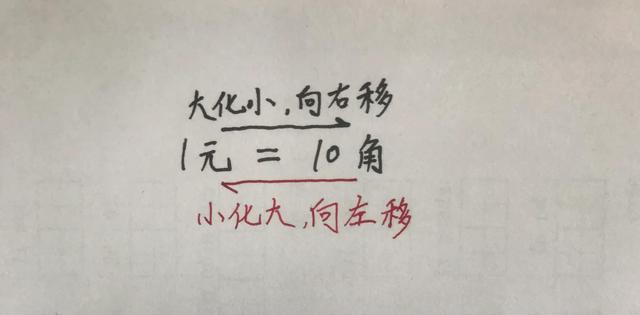 大化小,向右移
1元 = 10角
小化大,向左移